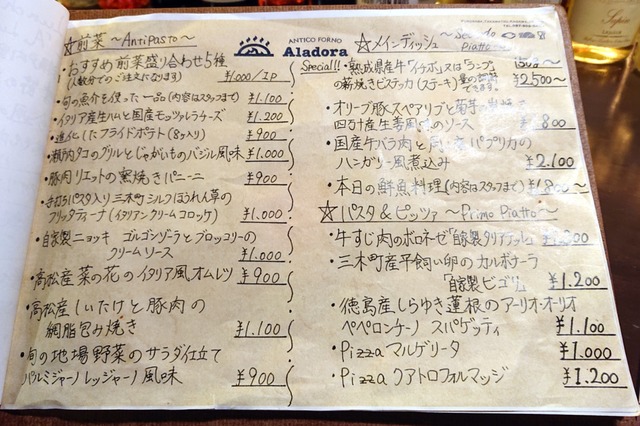 ☆前菜 〜Antipasto〜
・おすすめ前菜盛り合わせ5種
(人数分でのご注文になります) ¥1,000/1P
・旬の魚介を使った一品(内容はスタッフまで) ¥1.100
・イタリア産生ハムと国産モッツァレラチーズ ¥1.200
・進化したフライドポテト(8ヶ入り) ¥900
・瀬戸内タコのグリルとじゃがいものバジル風味 ¥1.000
・豚肉リエットの窯焼きパニーニ ¥900
・手打ちパスタ入り三木町シルクほうれん草の
フリッタティーナ(イタリアンクリームコロッケ) ¥1.000
・自家製ニョッキ ゴルゴンゾーラとブロッコリーの
クリームソース ¥1.000
・高松産菜の花のイタリア風オムレツ ¥900
・高松産しいたけと豚肉の
網脂包み焼き ¥1.100
・旬の地場野菜のサラダ仕立て
パルミジャーノレッジャーノ風味 ¥900
ANTICO FORNO
Aladora
☆メインディッシュ 〜Secondo
Piatto〜
Special!! ・熟成県産牛「イチボ」又は「ランプ」
の薪焼きビステッカ(ステーキ) ¥2500〜
・オリーブ豚スペアリブと
四万十産生青風のソース 800
・国産牛バラ肉と パプリカの
ハンガリー風煮込み ¥2.100
・本日の鮮魚料理(内容はスタッフまで)
☆パスタ&ピッツァ 〜Primo Piatto〜
・牛すじ肉のボロネーゼ「自製タリアテッレ」
・三木町産平飼い卵のカルボナーラ
「自家製ビゴリ」 ¥1.200
・徳島産しらゆき蓮根のアーリオ・オーリオ
ペペロンチーノ スパゲッティ ¥1.100
・Pizza マルゲリータ ¥1.000
・Pizza クアトロフォルマッジ ¥1.200